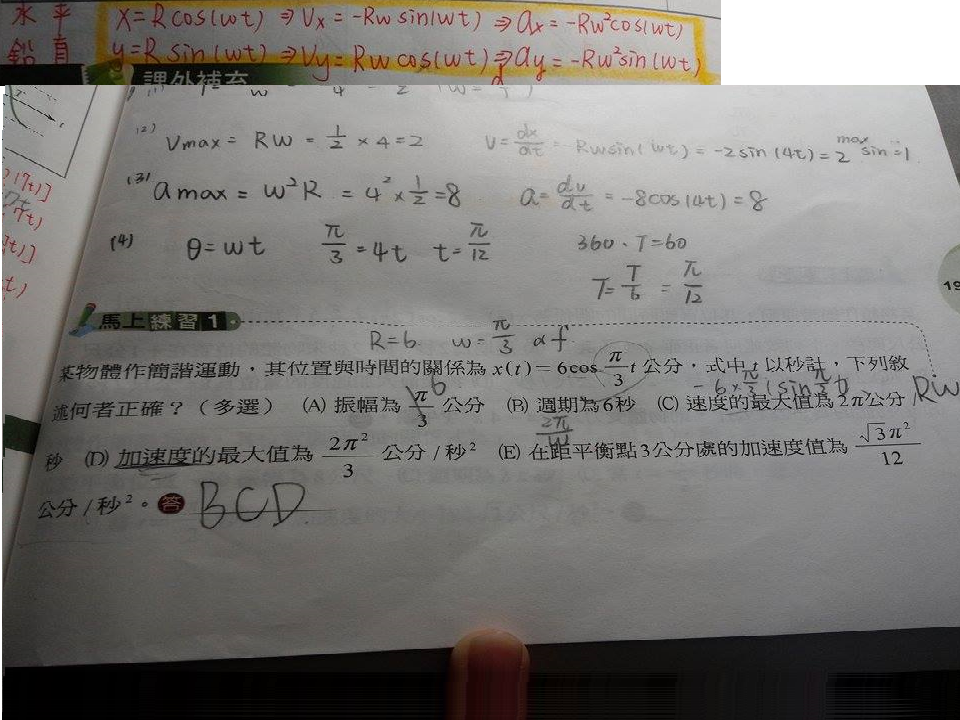 水平 x=Rcos(wt) ⇒ Vx = -Rw sin(wt) ⇒ ax = -Rw²cos(wt)
鉛直 y=R sin(wt) ⇒ Vy = Rw cos(wt) ⇒ ay = -Rw²sin(wt)
課外補充
(2) Vmax = RW = 1/2 × 4 = 2 V = dx/dt = Rwsin(wt) = -2 sin (4t) = 2 max sin = 1
(3) amax = w²R = 4² × 1/2 = 8 a = dv/dt = -8cos(4t) = 8
(4) θ = wt π/3 = 4t t = π/12 360、T=60
T = T/6 = π/12
19
馬上練習1
R=6 w=π/3 αf
某物體作簡諧運動，其位置與時間的關係為 x(t) = 6cos π/3 t 公分，式中 t 以秒計，下列敘
-6×π/3 (sin π/3 t) Rw
述何者正確？（多選） (A) 振幅為 π/3 公分 (B) 週期為6秒 (C) 速度的最大值為 2π公分 /
6 2π/w
秒 (D) 加速度的最大值為 2π²/3 公分 / 秒² (E) 在距平衡點3公分處的加速度值為 √3π²/12
公分 / 秒²。 答 BCD